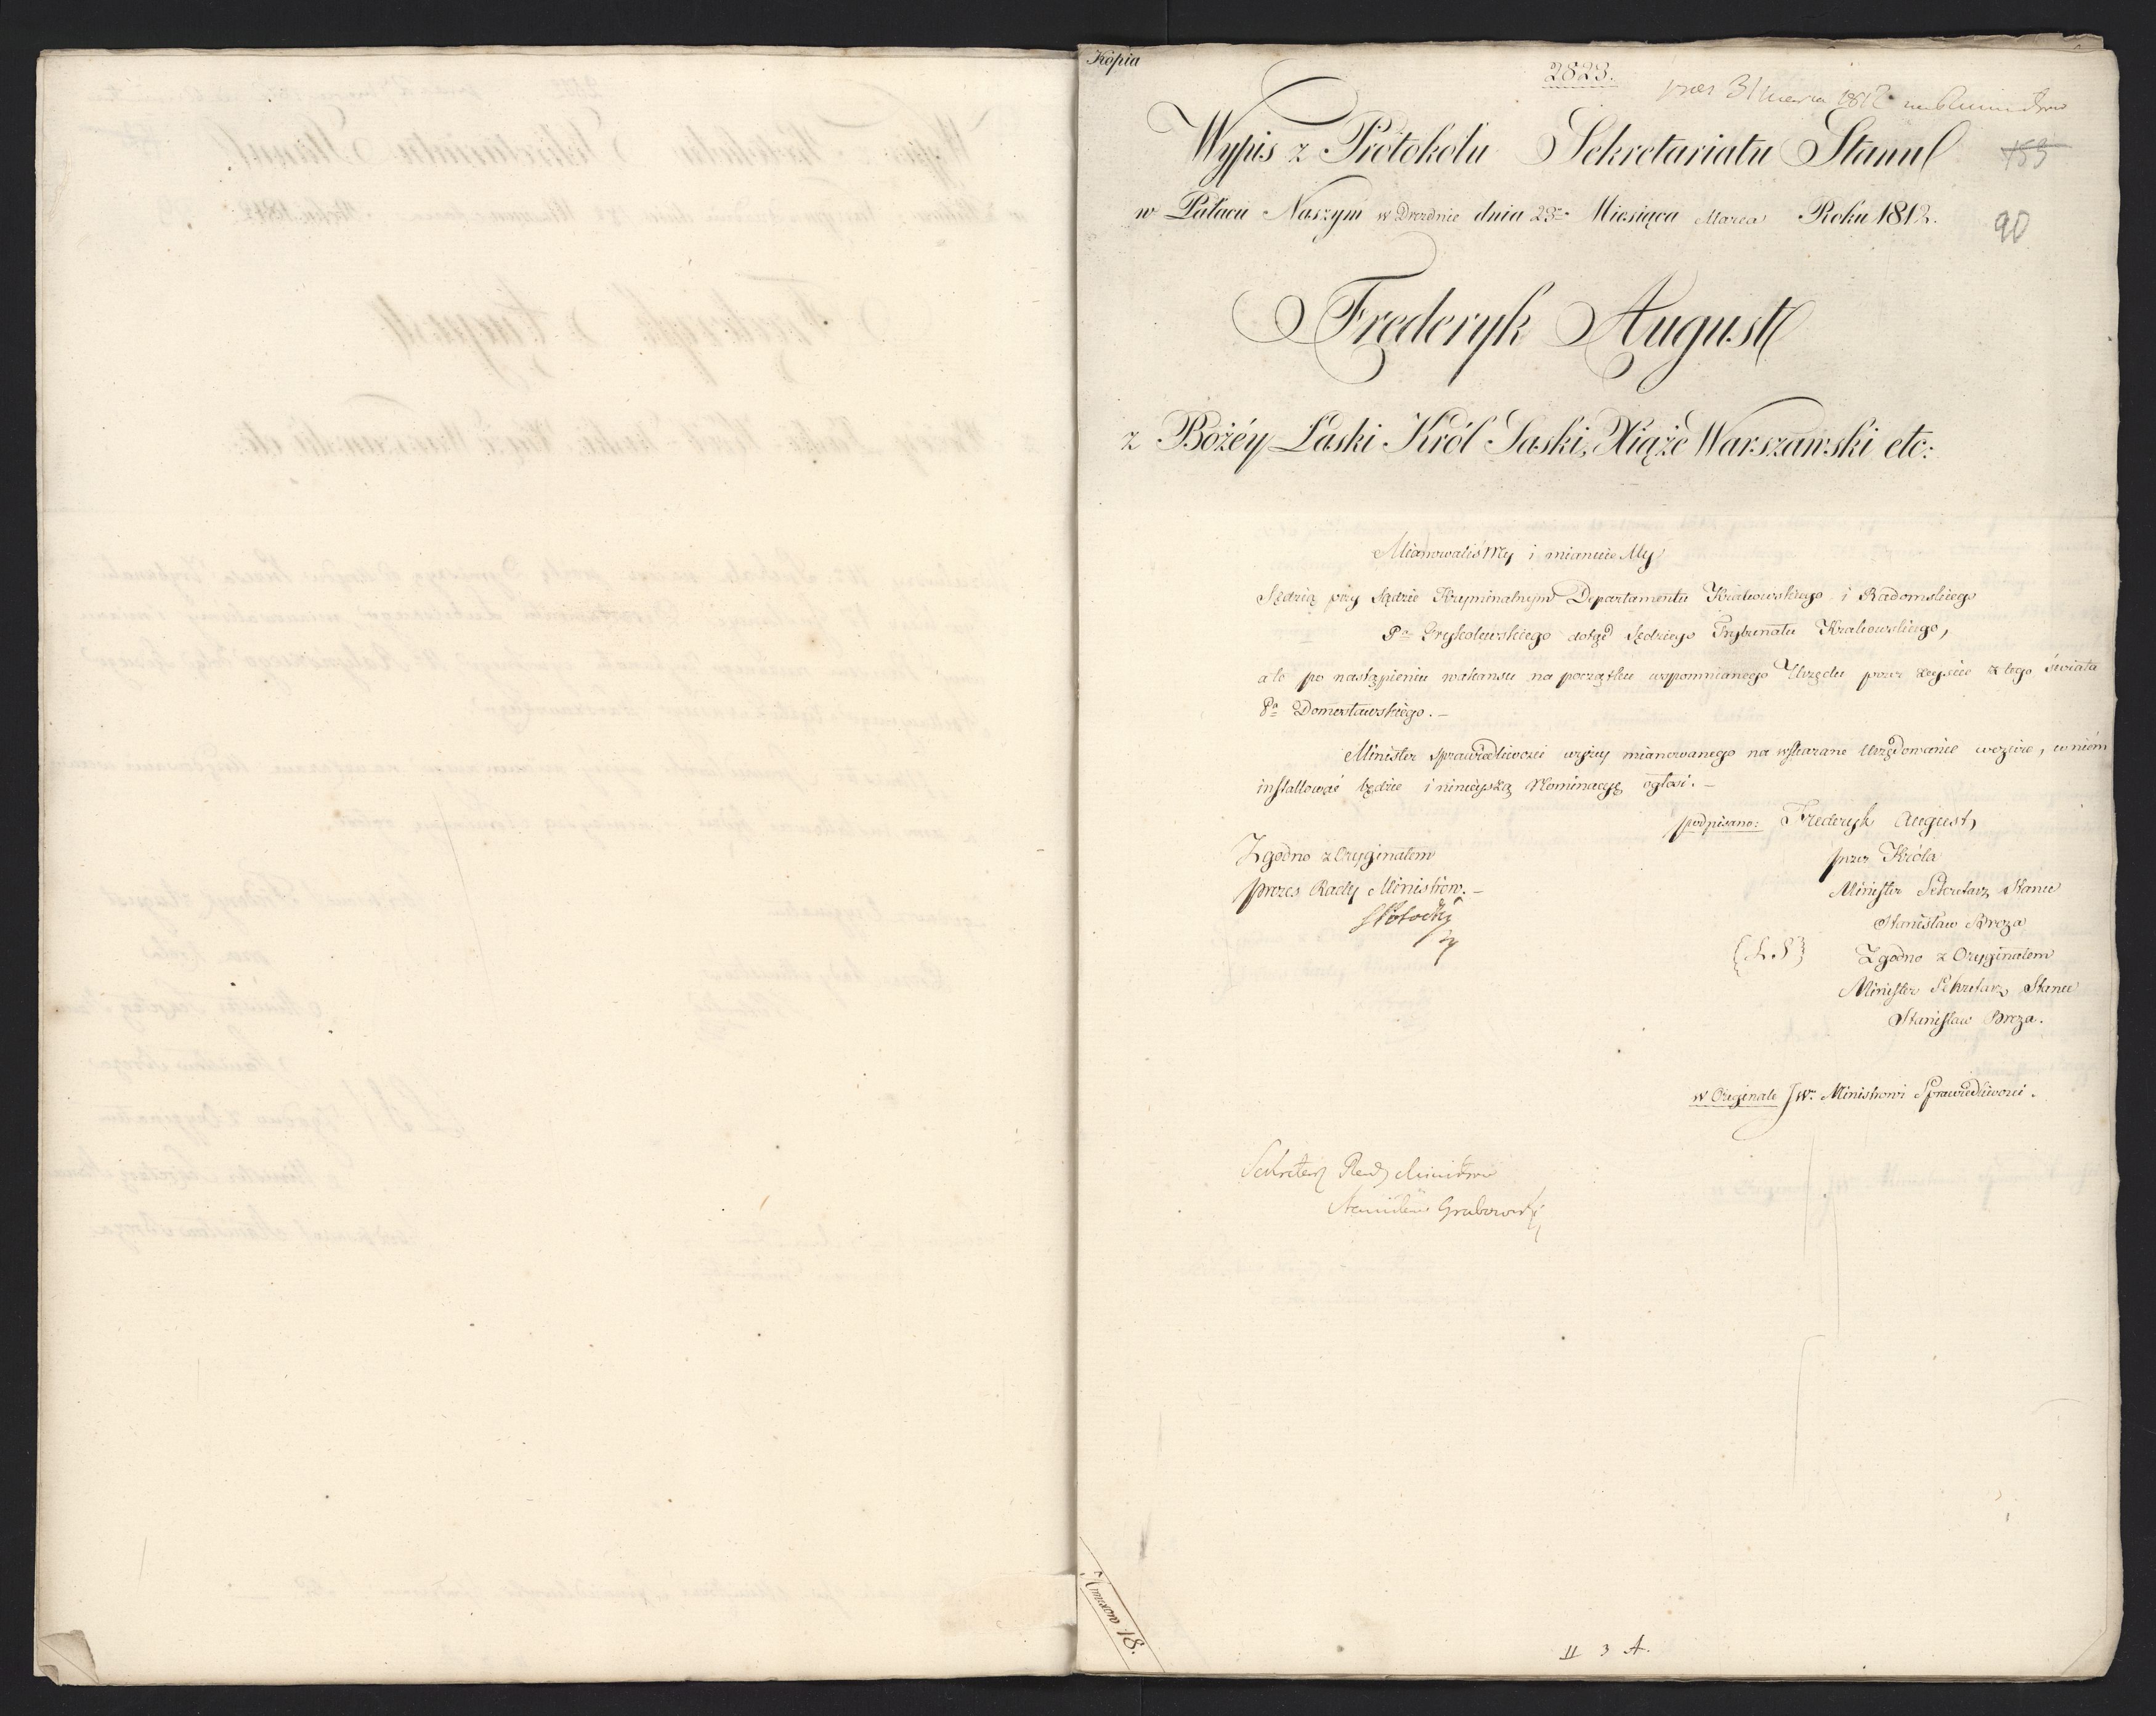 Kópia
2823.
prez 31 marca 1812
Wypis z Protokołu Sekretariatu Stanu
153
w Pałacu Naszym w Dreźnie dnia 23go Miesiąca Marca Roku 1812.
90
Frederyk August
z Bożéy Łaski Król Saski, Xiąże Warszawski etc:
Mianowaliśmy i mianuieMy
Sędzią przy Sądzie Kryminalnym Departamentu Krakowskiego i Radomskiego
Pa Gryskolewskiego dotąd Sędziego Trybunału Krakowskiego,
a to po nastąpieniu wakansu na początku wspomnianego Urzędu przez zeyście z tego świata
Pa Domosławskiego. –
Minister Sprawiedliwości wyżey mianowanego na wskazane Urzędowanie wezwie, w niém
installować będzie i ninieyszą Nominacyę ogłosi. –
podpisano: Frederyk August,
Zgodno z Oryginałem
przez Króla
Prezes Rady Ministrow. –
Minister Sekretarz Stanu
SPotocki
Stanisław Breza
(L.S) Zgodno z Oryginałem
Minister Sekretarz Stanu
Stanisław Breza.
w Originale JWu Ministrowi Sprawiedliwości.
Sekretarz Rady Ministrow
Stanisław Grabowski
18.
II 3 A.